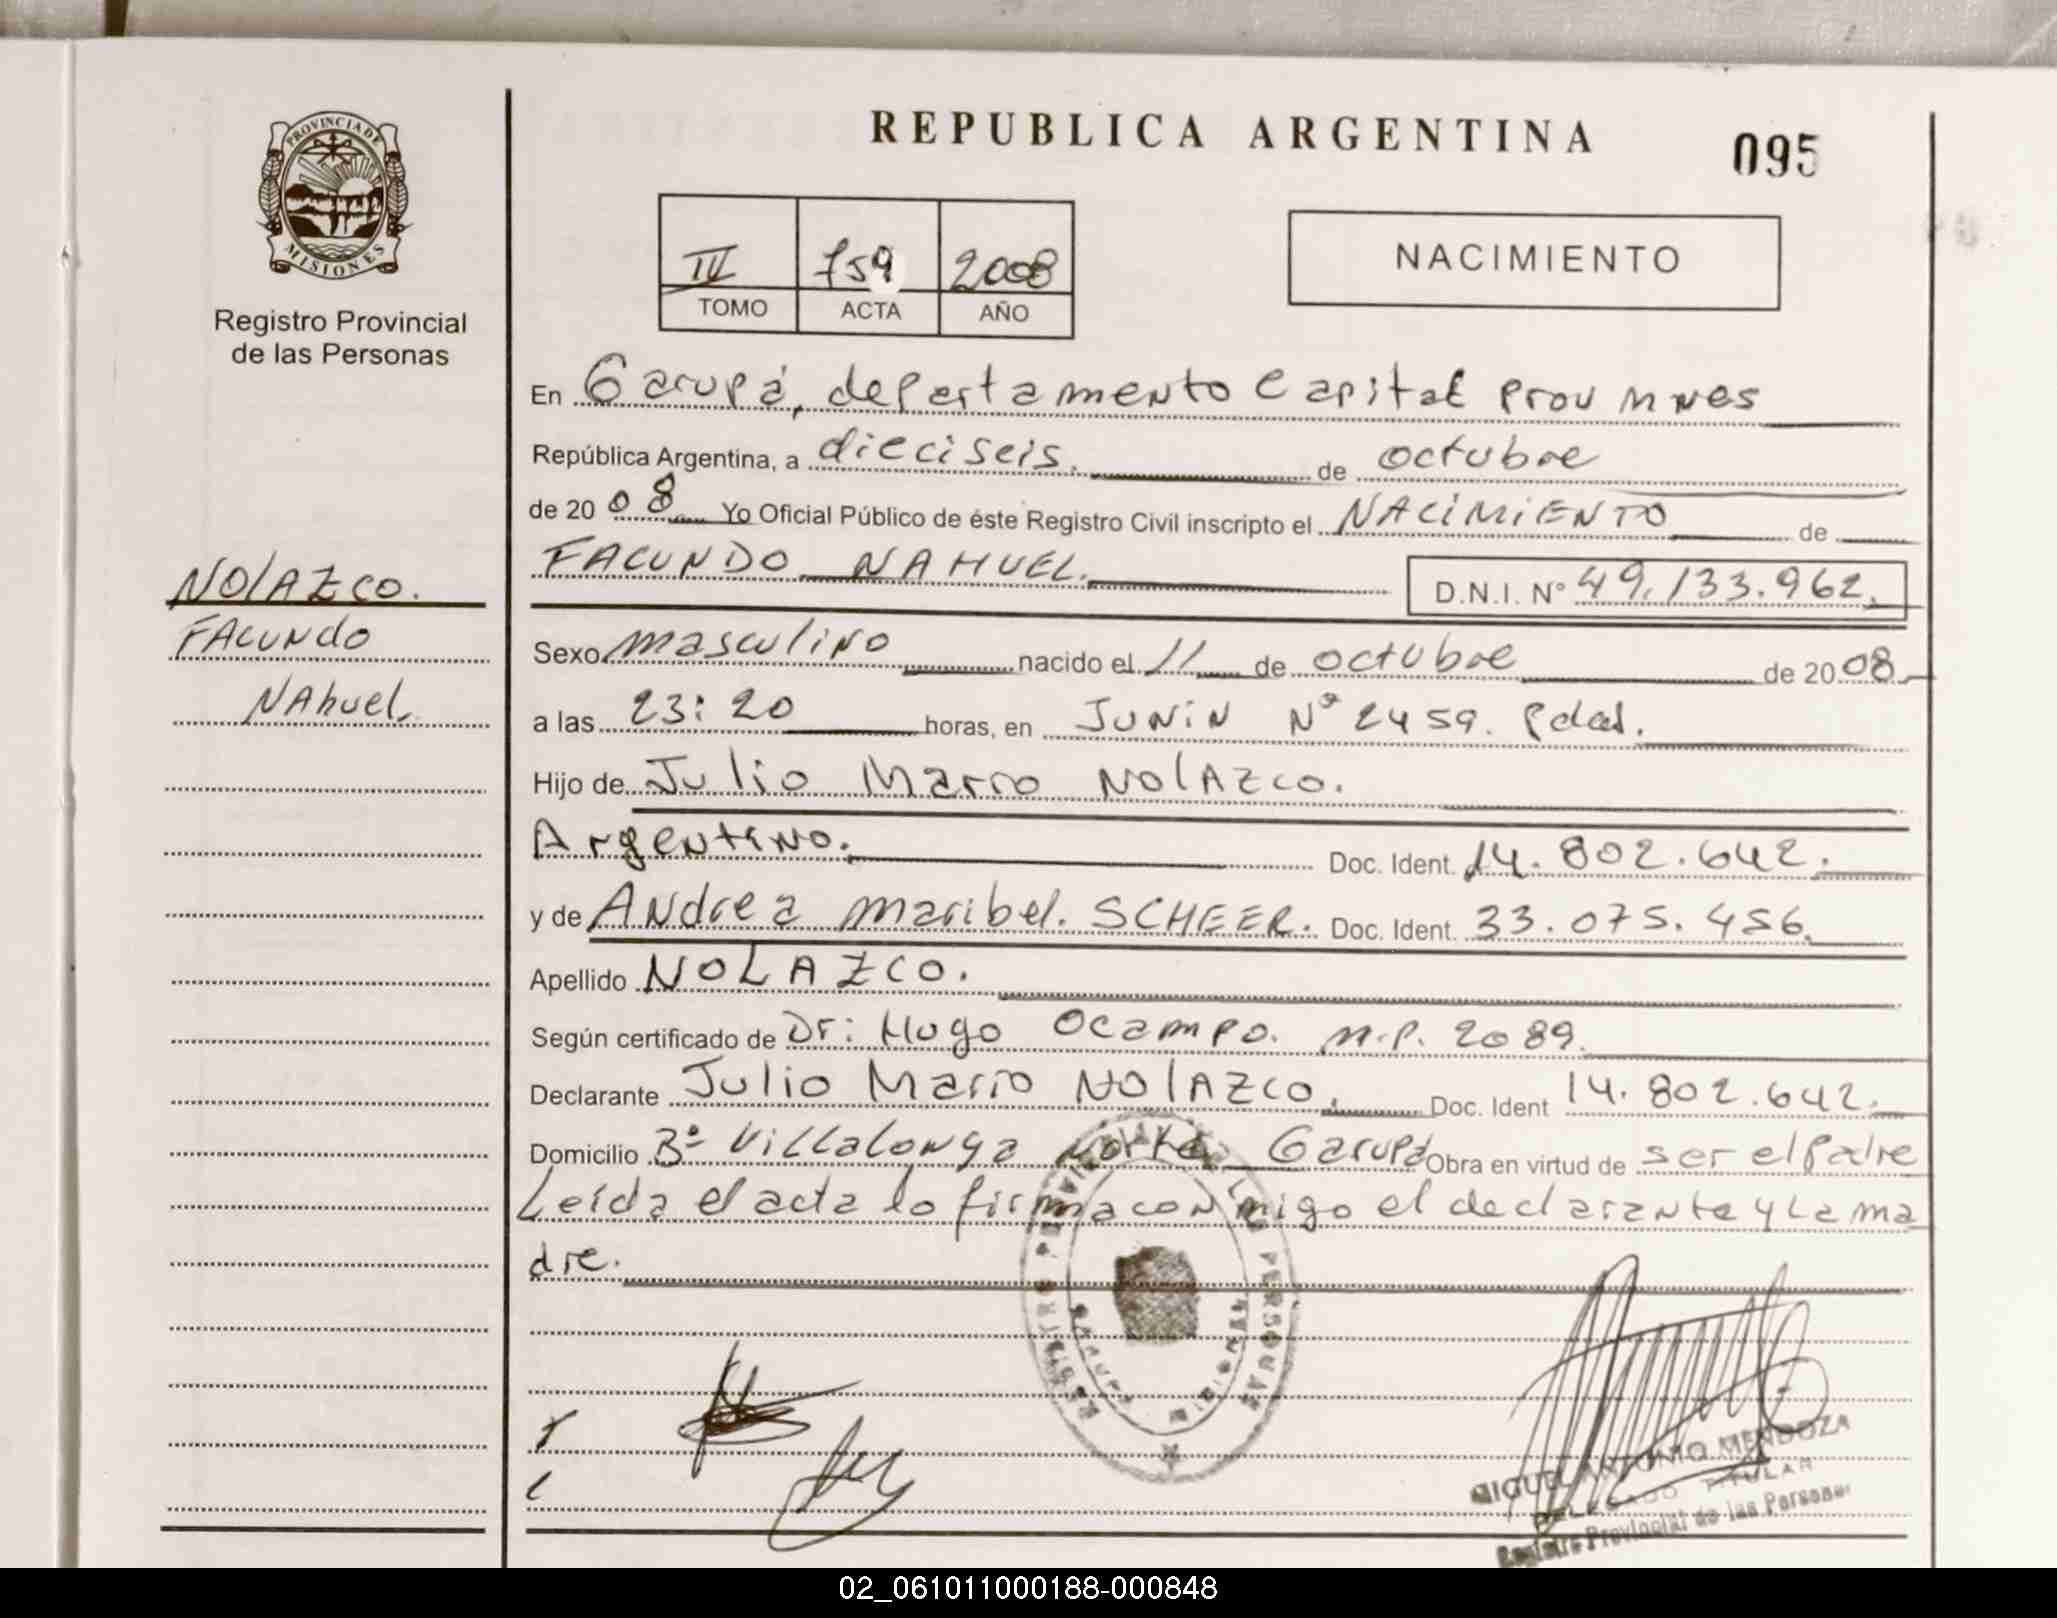 PROVINCIA DE
MISIONES
Registro Provincial
de las Personas
NOLAZCO.
FACUNDO
NAhuel.
REPUBLICA ARGENTINA
095
IV 759 2008
TOMO ACTA AÑO
NACIMIENTO
En Garupá, departamento Capital Prov Mnes
República Argentina, a dieciseis. de octubre
de 2008 Yo Oficial Público de éste Registro Civil inscripto el NACIMIENTO de
FACUNDO NAHUEL. D.N.I. N° 49.133.962.
Sexo masculino nacido el 11 de octubre de 2008
a las 23:20 horas, en JUNIN Nº 2459. Pdas.
Hijo de Julio Mario NOLAZCO.
Argentino. Doc. Ident. 14.802.642.
y de Andrea maribel. SCHEER. Doc. Ident. 33.075.456.
Apellido NOLAZCO.
Según certificado de Dr: Hugo Ocampo. M.P. 2089.
Declarante Julio Mario NOLAZCO. Doc. Ident 14.802.642.
Domicilio Bº Villalonga Norte Garupá Obra en virtud de ser el Padre
Leída el acta lo firma conmigo el declarante y la ma
dre.
MIGUEL ANTONIO MENDOZA
DELEGADO TITULAR
Registro Provincial de las Personas
02_061011000188-000848